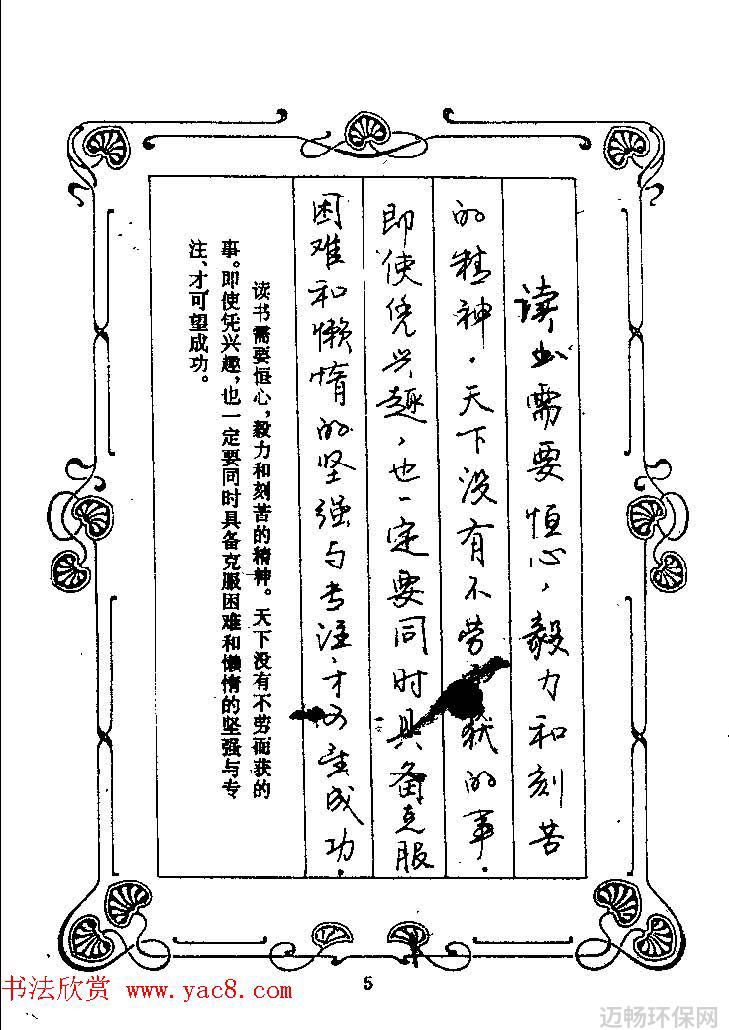 读书需要恒心，毅力和刻苦
的精神．天下没有不劳获的事．
即使凭兴趣，也一定要同时具备克服
困难和懒惰的坚强与专注，才可望成功．
读书需要恒心，毅力和刻苦的精神。天下没有不劳而获的
事。即使凭兴趣，也一定要同时具备克服困难和懒惰的坚强与专
注、才可望成功。
5
书法欣赏 www.yac8.com
迈畅环保网